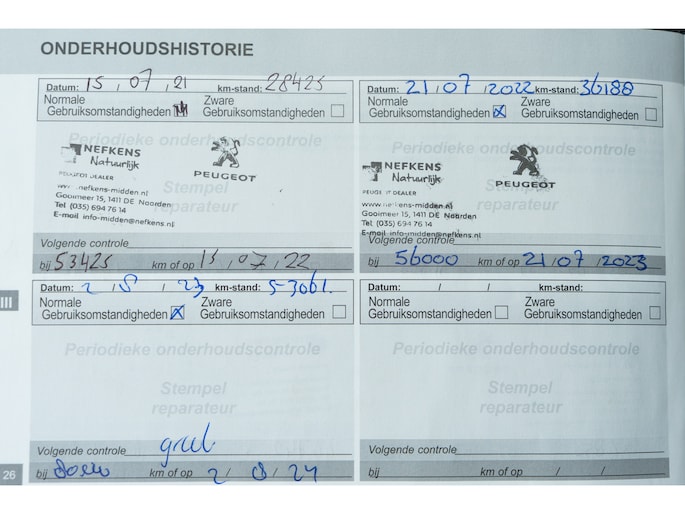 ONDERHOUDSHISTORIE
Datum: 15 / 07 / 21 km-stand: 28425
Normale Gebruiksomstandigheden Zware Gebruiksomstandigheden
Periodieke onderhoudscontrole
NEFKENS
Natuurlijk
PEUGEOT DEALER
PEUGEOT
Stempel
reparateur
www.nefkens-midden.nl
Gooimeer 15, 1411 DE Naarden
Tel (035) 694 76 14
E-mail info-midden@nefkens.nl
Volgende controle
bij 53425 km of op 15 / 07 / 22
Datum: 21 / 07 / 2022 km-stand: 36188
Normale Gebruiksomstandigheden Zware Gebruiksomstandigheden
Periodieke onderhoudscontrole
NEFKENS
Natuurlijk
PEUGEOT DEALER
PEUGEOT
Stempel
reparateur
www.nefkens-midden.nl
Gooimeer 15, 1411 DE Naarden
Tel (035) 694 76 14
E-mail info-midden@nefkens.nl
Volgende controle
bij 56000 km of op 21 / 07 / 2023
III
Datum: 2 / 8 / 23 km-stand: 53061
Normale Gebruiksomstandigheden Zware Gebruiksomstandigheden
Periodieke onderhoudscontrole
Stempel
reparateur
Volgende controle
bij km of op 2 / 8 / 24
Datum: / / km-stand:
Normale Gebruiksomstandigheden Zware Gebruiksomstandigheden
Periodieke onderhoudscontrole
Stempel
reparateur
Volgende controle
bij km of op / /
26